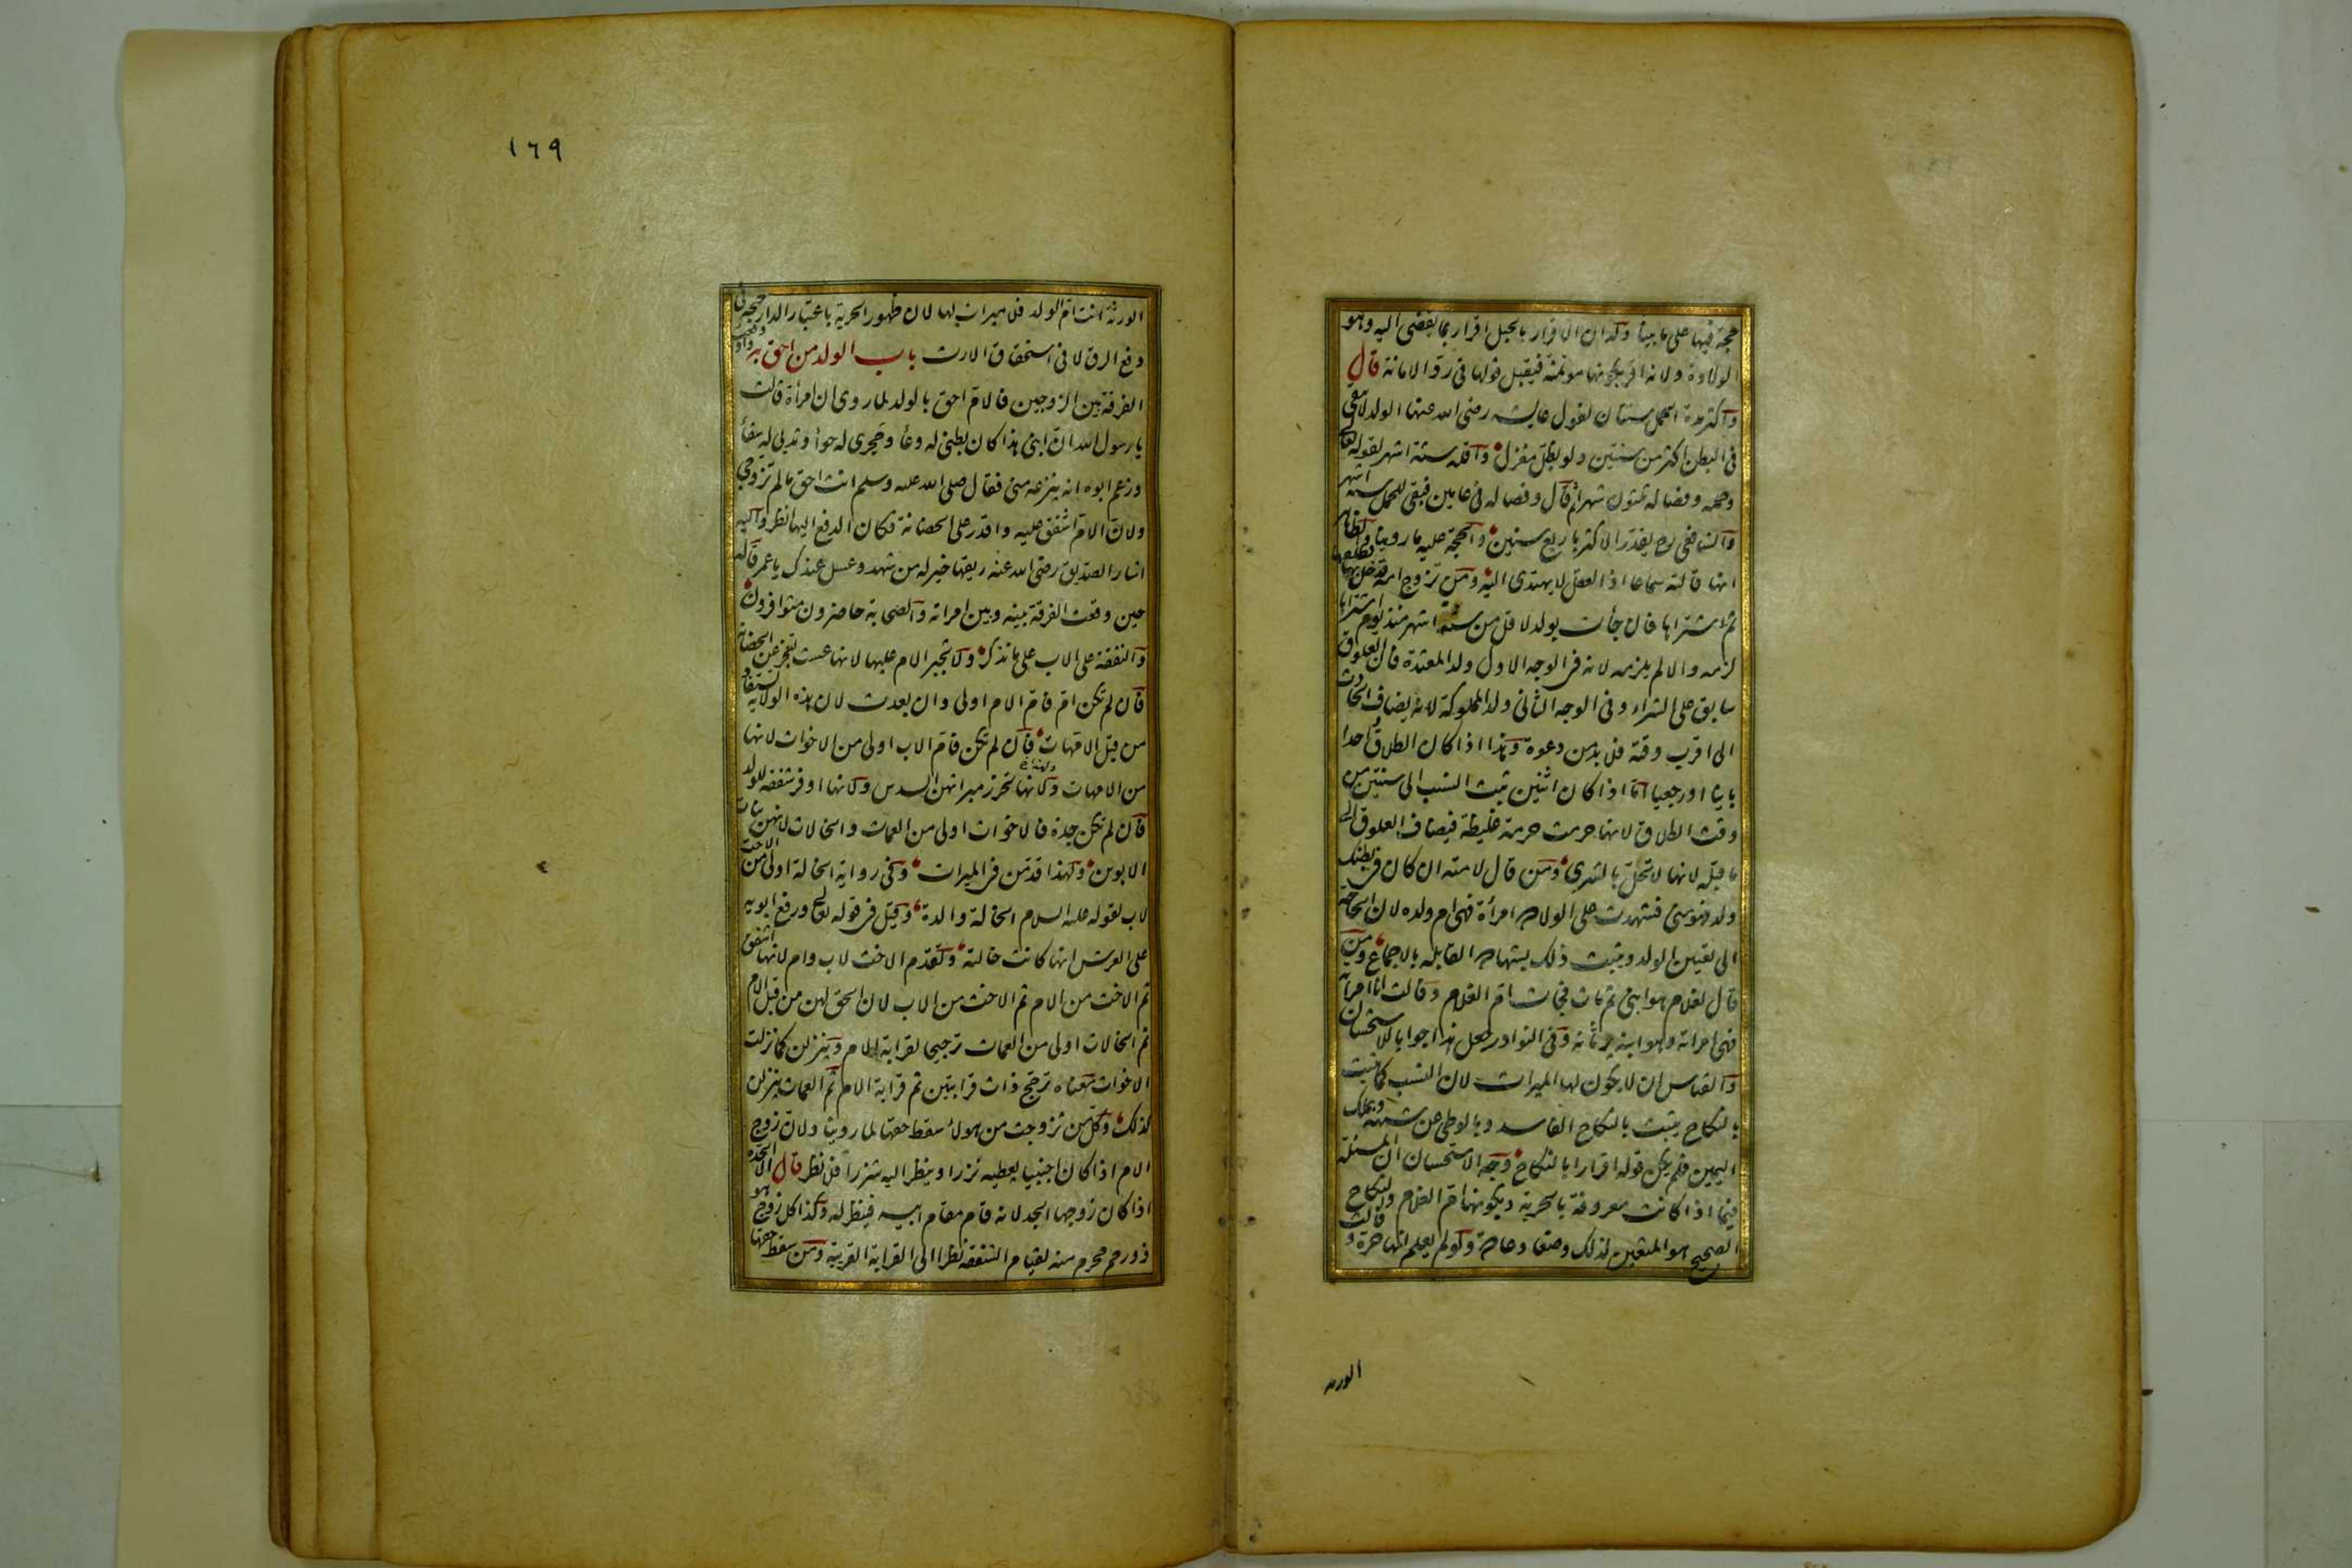 حجة فيها على ما بينا ولان الاقرار بالحبل اقرار بما يفضى اليه وهو
الولادة ولانه اقر بكونها مؤتمنة فيقبل قولها فى رد الامانة قال
واكثر مدة الحمل سنتان لقول عايشه رضى الله عنها الولد لا يبقى
فى البطن اكثر من سنتين ولو بظل مغزل واقله ستة اشهر لقوله تعالى
وحمله وفصاله ثلثون شهرا ثم قال وفصاله فى عامين فبقى للحمل ستة اشهر
والشافعى رح يقدر الاكثر باربع سنين والحجة عليه ما روينا والظاهر
انها قالته سماعا اذ العقل لا يهتدى اليه ومن تزوج امة فطلقها
ثم اشتراها فان جأت بولد لاقل من ستة اشهر منذ يوم اشتراها
لزمه والا لم يلزمه لانه فى الوجه الاول ولد المعتدة فان العلوق
سابق على الشراء وفى الوجه الثانى ولد المملوكة لانه يضاف الحادث
الى اقرب وقته فلا بد من دعوة وهذا اذا كان الطلاق واحدا
باينا او رجعيا اما اذا كان اثنين يثبت النسب الى سنتين من
وقت الطلاق لانها حرمت حرمة غليظة فيضاف العلوق الى
ما قبله لانها لا تحل بالشرى ومن قال لامته ان كان فى بطنك
ولد فهو منى فشهدت على الولادة امرأة فهى ام ولده لان الحاجة
الى تعيين الولد ويثبت ذلك بشهادة القابلة بالاجماع ومن
قال لغلام هو ابنى ثم مات فجأت ام الغلام وقالت انا امرأته
فهى امراته وهو ابنه يرثانه وفى النوادر جعل هذا جواب الاستحسان
والقياس ان لا يكون لها الميراث لان النسب كما يثبت
بالنكاح يثبت بالنكاح الفاسد وبالوطى عن شبهة وبملك
اليمين فلم يكن قوله اقرارا بالنكاح وجه الاستحسان ان المسئلة
فيما اذا كانت معروفة بالحرية وبكونها ام الغلام والنكاح
الصحيح هو المتعين لذلك وضعا وعادة ولو لم يعلم انها حرة وقالت
الورثة
١٦٩
الورثة انت ام الولد فلا ميراث لها لان ظهور الحرية باعتبار الدار حجة فى
دفع الرق لا فى استحقاق الارث باب الولد من احق به واذا وقعت
الفرقة بين الزوجين فالام احق بالولد لما روى ان امرأة قالت
يا رسول الله ان ابنى هذا كان بطنى له وعأ وحجرى له حوأ وثديى له سقأ
وزعم ابوه انه ينزعه منى فقال صلى الله عليه وسلم انت احق ما لم تزوجى
ولان الام اشفق عليه واقدر على الحضانة فكان الدفع اليها انظر واليه
اشار الصديق رضى الله عنه ريقها خير له من شهد وعسل عندك يا عمر قاله
حين وقعت الفرقة بينه وبين امراته والصحابة حاضرون متوافرون
والنفقة على الاب على ما نذكر ولا تجبر الام عليها لانها عست تعجز عن الحضانة
فان لم تكن ام فام الام اولى وان بعدت لان هذه الولاية تستفاد
من قبل الامهات فان لم تكن فام الاب اولى من الاخوات لانها
من الامهات ولهذا تحرز ميراثهن السدس ولانها اوفر شفقة للولد
فان لم تكن جدة فالاخوات اولى من العمات والخالات لانهن بنات
الابوين ولهذا قدمن فى الميراث وفى رواية الخالة اولى من الاخت
لاب لقوله عليه السلام الخالة والدة وقيل فى قوله تعالى ورفع ابويه
على العرش انها كانت خالته وتقدم الاخت لاب وام لانها اشفق
ثم الاخت من الام ثم الاخت من الاب لان الحق لهن من قبل الام
ثم الخالات اولى من العمات ترجيحا لقرابة الام وينزلن كما نزلت
الاخوات معناه ترجح ذات قرابتين ثم قرابة الام ثم العمات ينزلن
كذلك وكل من تزوجت من هولاء سقط حقها لما روينا ولان زوج
الام اذا كان اجنبيا يعطيه نزرا وينظر اليه شزرا فلا نظر قال الا الجدة
اذا كان زوجها الجد لانه قام مقام ابيه فينظر له وكذا كل زوج هو
ذو رحم محرم منه لقيام الشفقة نظرا الى القرابة القريبة ومن سقط حقها